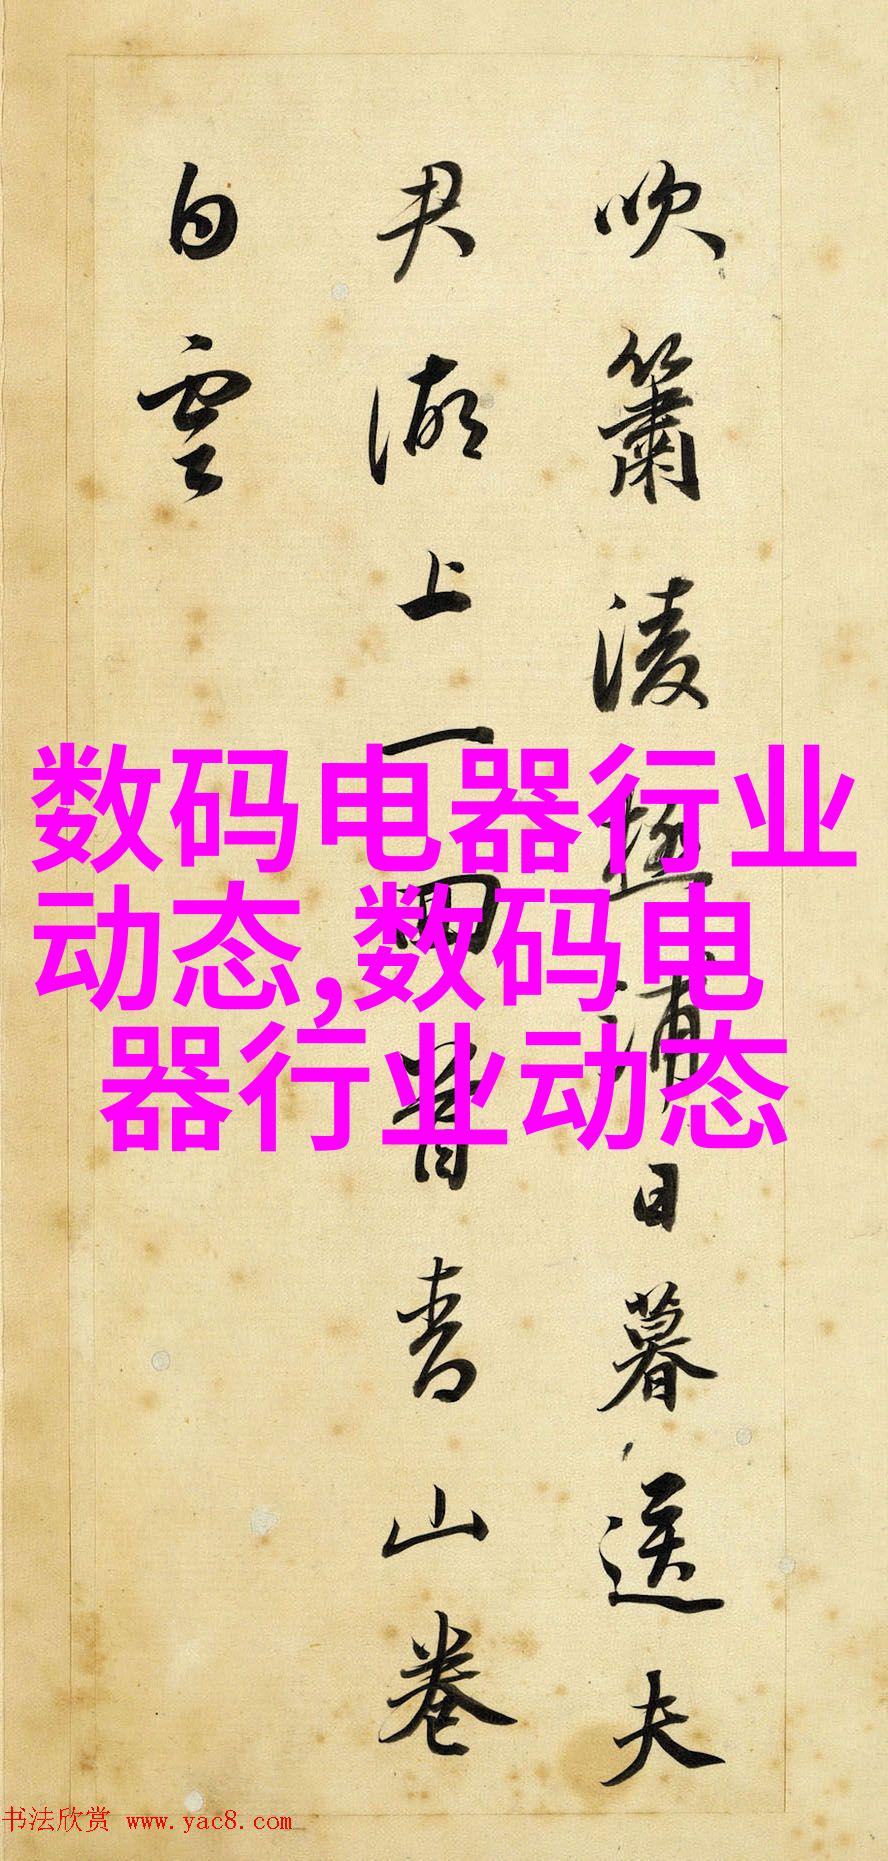 吹簫凌極浦日暮送夫
君湖上一回首青山卷
白雲
数码电器行业
动态,数码电
器行业动态
书法欣赏 www.yac8.com